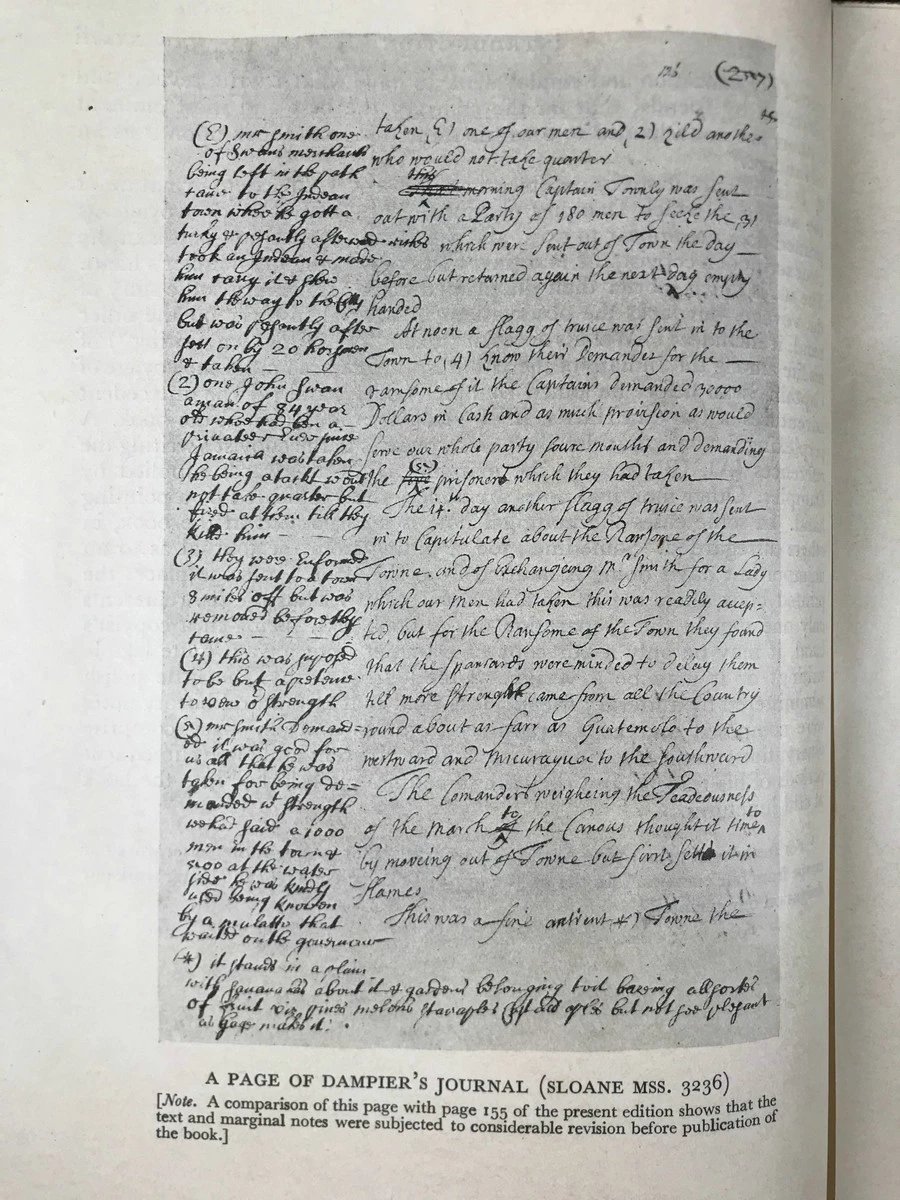 126 (257)
taken (1) one of our men and (2) kild another
who would not take quarter
this
morning Captain Townly was sent
out with a Party of 180 men to seeke the (3)
riches which were sent out of Town the day
before but returned again the next day empty
handed
At noon a flagg of truice was sent in to the
Town to (4) know their Demandes for the
ransome of it the Captains demanded 30000
Dollars in Cash and as much provision as would
serve our whole party foure months and demanding
the prisoners which they had taken
The 14th day another flagg of truice was sent
in to Capitulate about the Ransome of the
Towne and of Exchangeing Mr Smith for a Lady
which our men had taken this was readily accep-
ted, but for the Ransome of the Town they found
that the spaniards were minded to delay them
till more strength came from all the Country
round about as farr as Guatemalo to the
westward and Nicuragua to the southward
The Comanders weigheing the Teadeousness
of the march to the Canoas thought it time to
by moveing out of Towne but first sett it in
flames
This was a fine antient (*) Towne the
mr smith one
of Swans merchants
being left in the path
came to the Indean
town where he gott a
turky & presantly afterward
took an Indean & made
him carry it & shew
him the way to the Citty
but was presantly after
sett on by 20 horsmen
& taken
(2) one John Swan
a man of 84 year
old whoe had ben a
privateer ever since
Jamaica was taken
he being atackt would
not take quarter but
fired at them till they
kild him
(3) they were Enformed
it was sent to a town
8 miles off but was
removed before they
came
(4) this was suposed
to be but a pretence
to vew our strength
mr Smith Demand=
ed it was good for
us all that he was
taken for being de=
manded our strength
he said a 1000
men in the town &
500 at the water
side he was kindly
used being knowen
by a mulatto that
waited on the governour
(*) it stands in a plain
with savanahs about it & gardens belonging to it bareing all sortes
of fruit viz pines melons staraples but not soe plesant
as Gage makes it
A PAGE OF DAMPIER'S JOURNAL (SLOANE MSS. 3236)
[Note. A comparison of this page with page 155 of the present edition shows that the
text and marginal notes were subjected to considerable revision before publication of
the book.]